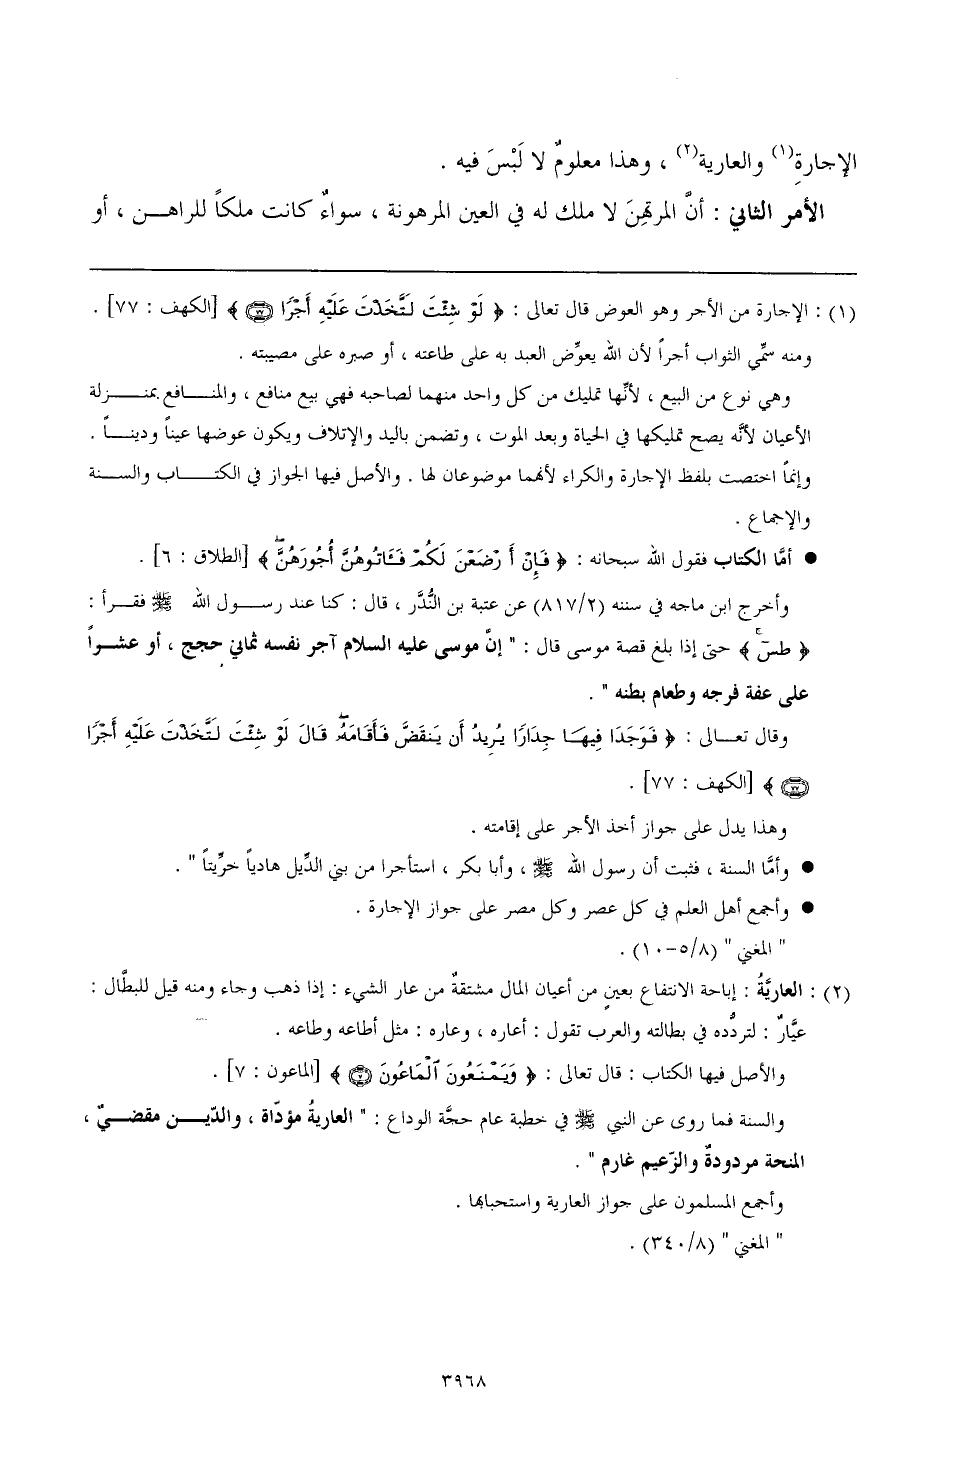 الإجارةِ(١) والعارية(٢) ، وهذا معلومٌ لا لَبْسَ فيه .
الأمر الثاني : أنَّ المرتهِنَ لا ملك له في العين المرهونة ، سواءٌ كانت ملكاً للراهـــن ، أو
(١) : الإجارة من الأجر وهو العوض قال تعالى : ﴿ لَوْ شِئْتَ لَتَّخَذْتَ عَلَيْهِ أَجْرًا ۝٧٧ ﴾ [الكهف : ٧٧] .
ومنه سمِّي الثواب أجراً لأن الله يعوِّض العبد به على طاعته ، أو صبره على مصيبته .
وهي نوع من البيع ، لأنَّها تمليك من كل واحد منهما لصاحبه فهي بيع منافع ، والمنـــافع بمنــــزلة
الأعيان لأنَّه يصح تمليكها في الحياة وبعد الموت ، وتضمن باليد والإتلاف ويكون عوضها عيناً ودينـــاً .
وإنماً اختصت بلفظ الإجارة والكراء لأنهما موضوعان لها . والأصل فيها الجواز في الكتـــــاب والســـنة
والإجماع .
● أمَّا الكتاب فقول الله سبحانه : ﴿ فَإِنْ أَرْضَعْنَ لَكُمْ فَـَٔاتُوهُنَّ أُجُورَهُنَّۖ ﴾ [الطلاق : ٦] .
وأخرج ابن ماجه في سننه (٨١٧/٢) عن عتبة بن النُّدَّر ، قال : كنا عند رســـول الله ﷺ فقـــرأ :
﴿ طسٓۚ ﴾ حتى إذا بلغ قصة موسى قال : " إنَّ موسى عليه السلام آجر نفسه ثماني حجج ، أو عشـــراً
على عفة فرجه وطعام بطنه " .
وقال تعـــالى : ﴿ فَوَجَدَا فِيهَا جِدَارًا يُرِيدُ أَن يَنقَضَّ فَأَقَامَهُۥۖ قَالَ لَوْ شِئْتَ لَتَّخَذْتَ عَلَيْهِ أَجْرًا
۝٧٧ ﴾ [الكهف : ٧٧] .
وهذا يدل على جواز أخذ الأجر على إقامته .
● وأمَّا السنة ، فثبت أن رسول الله ﷺ ، وأبا بكر ، استأجرا من بني الدِّيل هادياً خرِّيتاً " .
● وأجمع أهل العلم في كل عصر وكل مصر على جواز الإجارة .
" المغني " (٨/٥-١٠) .
(٢) : العاريَّةُ : إباحة الانتفاع بعينٍ من أعيان المال مشتقةٌ من عار الشيء : إذا ذهب وجاء ومنه قيل للبطَّال :
عيَّارٌ : لتردُّده في بطالته والعرب تقول : أعاره ، وعاره : مثل أطاعه وطاعه .
والأصل فيها الكتاب : قال تعالى : ﴿ وَيَمْنَعُونَ ٱلْمَاعُونَ ۝٧ ﴾ [الماعون : ٧] .
والسنة فما روى عن النبي ﷺ في خطبة عام حجَّة الوداع : " العاريةُ مؤدّاة ، والدّيـــن مقضــيٌ ،
المنحة مردودةٌ والزّعيم غارم " .
وأجمع المسلمون على جواز العارية واستحبابها .
" المغني " (٣٤٠/٨) .
٣٩٦٨